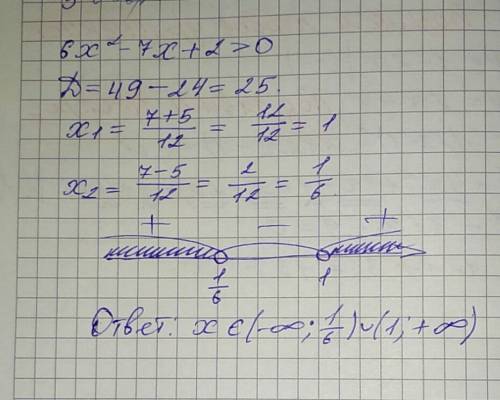 6x² - 7x + 2 > 0
Д = 49 - 24 = 25.
x₁ = (7+5)/12 = 12/12 = 1
x₂ = (7-5)/12 = 2/12 = 1/6
+ − +
1/6 1
Ответ: x ∈ (-∞; 1/6) ∪ (1; +∞)